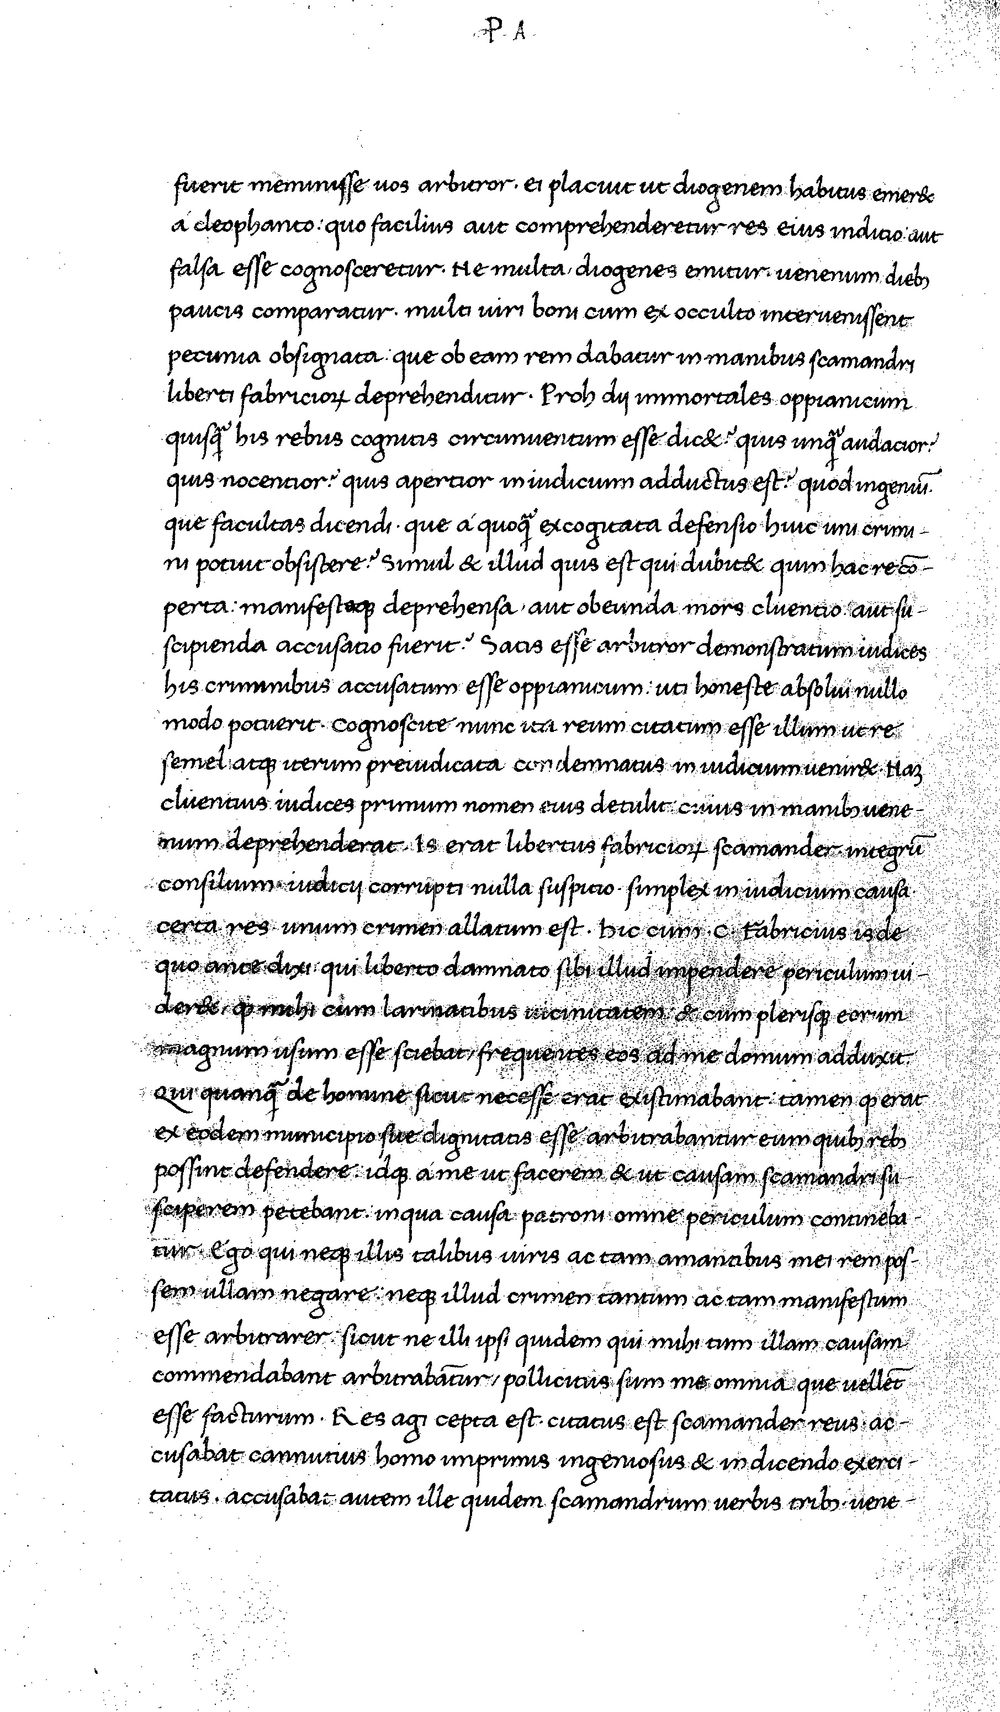 P A
fuerit meminisse uos arbitror. ei placuit ut diogenem habitus emer&
á cleophanto: quo facilius aut comprehenderetur res eius inditio: aut
falsa esse cognosceretur. Ne multa, diogenes emitur. uenenum dieb;
paucis comparatur. multi uiri boni cum ex occulto interuenissent
pecunia obsignata: que ob eam rem dabatur in manibus scamandri
liberti fabricioꝝ deprehenditur. Proh dij immortales oppianicum
quisq̃ his rebus cognitis circunuentum esse dic&? quis unq̃ audacior?
quis nocentior? quis apertior in iudicium adductus est? quod ingeniũ.
que facultas dicendi. que á quoq̃ excogitata defensio huic uni crimi-
ni potuit obsistere? Simul & illud quis est qui dubit& quin hac re cõ-
perta: manifestaq; deprehensa, aut obeunda mors cluentio: aut su-
scipienda accusatio fuerit? Satis esse arbitror demonstratum iudices
his criminibus accusatum esse oppianicum: uti honeste absolui nullo
modo potuerit. Cognoscite nunc ita reum citatum esse illum ut re
semel atq; iterum preiudicata condemnatus in iudicium uenir&. Naꝫ
cluentius iudices primum nomen eius detulit cuius in manib; uene-
num deprehenderat. Is erat libertus fabricioꝝ scamander. integrũ
consilium. iudicij corrupti nulla suspitio. simplex in iudicium causa
certa res. unum crimen allatum est. hic cum .C. Fabricius is de
quo ante dixi qui liberto damnato sibi illud impendere periculum ui-
der&, ꝙ mihi cum larinatibus uicinitatem & cum plerisq; eorum
magnum usum esse sciebat, frequentes eos ad me domum adduxit.
Qui quanq̃ de homine sicut necesse erat existimabant: tamen ꝙ erat
ex eodem municipio sue dignitatis esse arbitrabantur eum quib; reb;
possint defendere: idq; a me ut facerem & ut causam scamandri su-
sciperem petebant. in qua causa patroni omne periculum contineba-
tur. Ego qui neq; illis talibus uiris ac tam amantibus mei rem pos-
sem ullam negare: neq; illud crimen tantum ac tam manifestum
esse arbitrarer: sicut ne illi ipsi quidem qui mihi tum illam causam
commendabant arbitrabãtur, pollicitus sum me omnia que uellẽt
esse facturum. Res agi cepta est. citatus est scamander reus. ac-
cusabat cannutius homo imprimis ingeniosus & in dicendo exerci-
tatus. accusabat autem ille quidem scamandrum uerbis trib; uene-